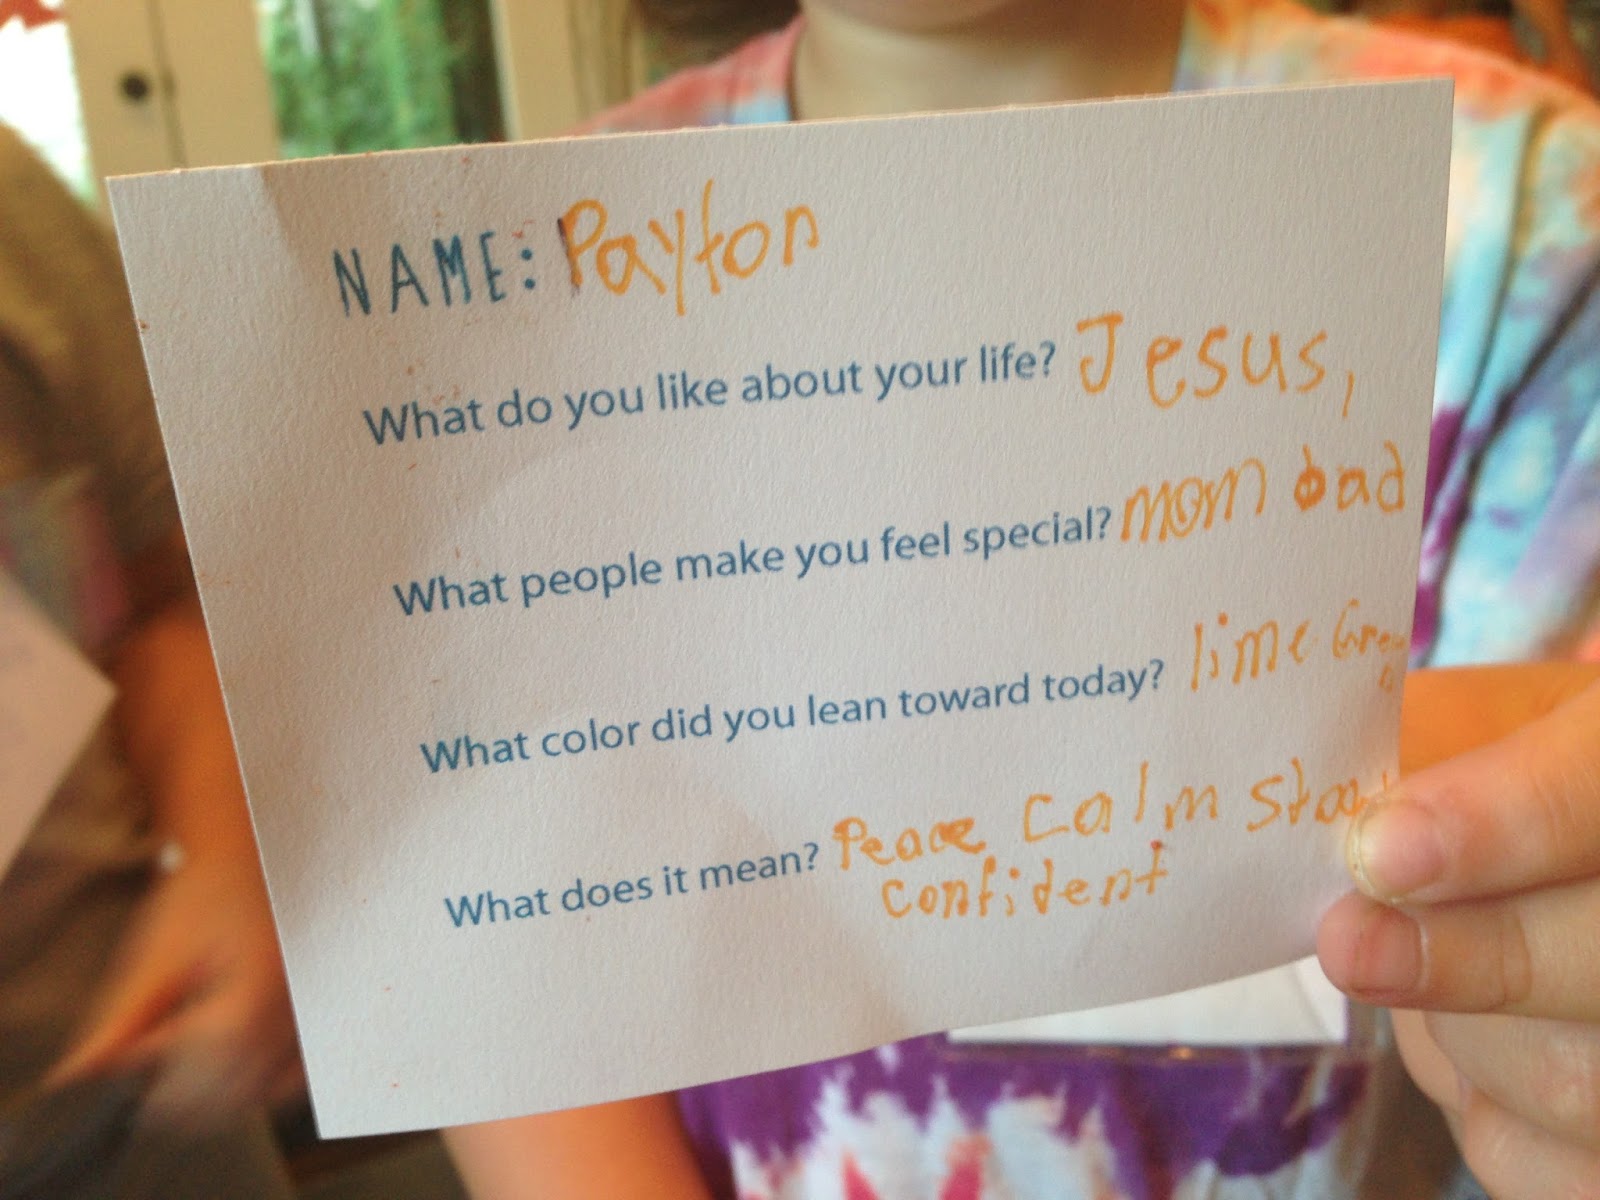 NAME: Payton
What do you like about your life? Jesus,
What people make you feel special? mom dad
What color did you lean toward today? lime Green
What does it mean? Peace Calm
confident